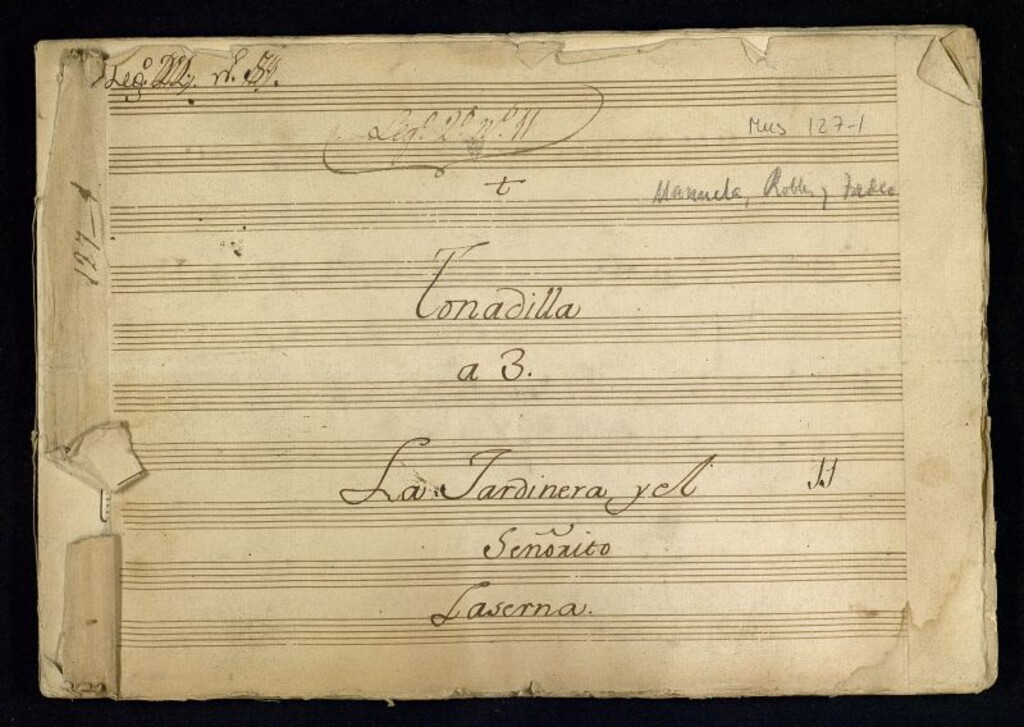 Leg.º 22, nº
Leg.º 2º nº 11
Mus 127-1
t
Manuela, Robles y
127-1
Tonadilla
a 3.
La Jardinera y el
11
Señorito
Laserna.